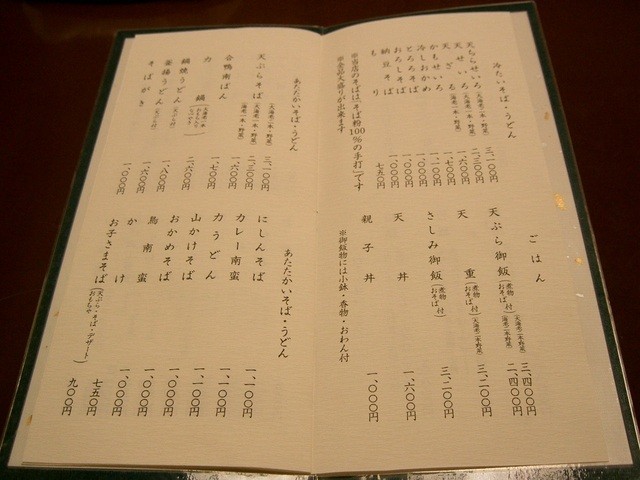 冷たいそば・うどん
天ちらせいろ(天海老二本・野菜) 三、一〇〇円
天せいろ(天海老一本・野菜) 二、三〇〇円
天ざる(海老一本・野菜) 一、六〇〇円
かもせいろ 一、七〇〇円
冷しおかめ 一、一〇〇円
とろろそば 一、〇〇〇円
おろしそば 一、〇〇〇円
納豆そば 一、〇〇〇円
もり 七五〇円
※当店のそばは「そば粉100%の手打」です
※全品大盛りが出来ます
ごはん
天ぷら御飯(煮物おそば付)(天海老二本野菜) 三、四〇〇円
(海老二本野菜) 二、四〇〇円
天重(煮物おそば付)(天海老二本野菜) 三、二〇〇円
さしみ御飯(煮物おそば付) 三、二〇〇円
天丼 一、六〇〇円
親子丼 一、〇〇〇円
※御飯物には小鉢・香物・おわん付
あたたかいそば・うどん
天ぷらそば(天海老二本・野菜) 三、一〇〇円
(天海老一本・野菜) 二、三〇〇円
(海老一本・野菜) 一、六〇〇円
合鴨南ばん 一、七〇〇円
力鍋 二、六〇〇円
鍋焼うどん(天ぷら付) 一、八〇〇円
釜揚うどん(天ぷら付) 一、六〇〇円
そばがき 一、〇〇〇円
あたたかいそば・うどん
にしんそば 一、一〇〇円
カレー南蛮 一、一〇〇円
力うどん 一、一〇〇円
山かけそば 一、一〇〇円
おかめそば 一、〇〇〇円
鳥南蛮 一、〇〇〇円
かけ 七五〇円
お子さまそば(天ぷら・そば・デザートおもちゃ) 九〇〇円